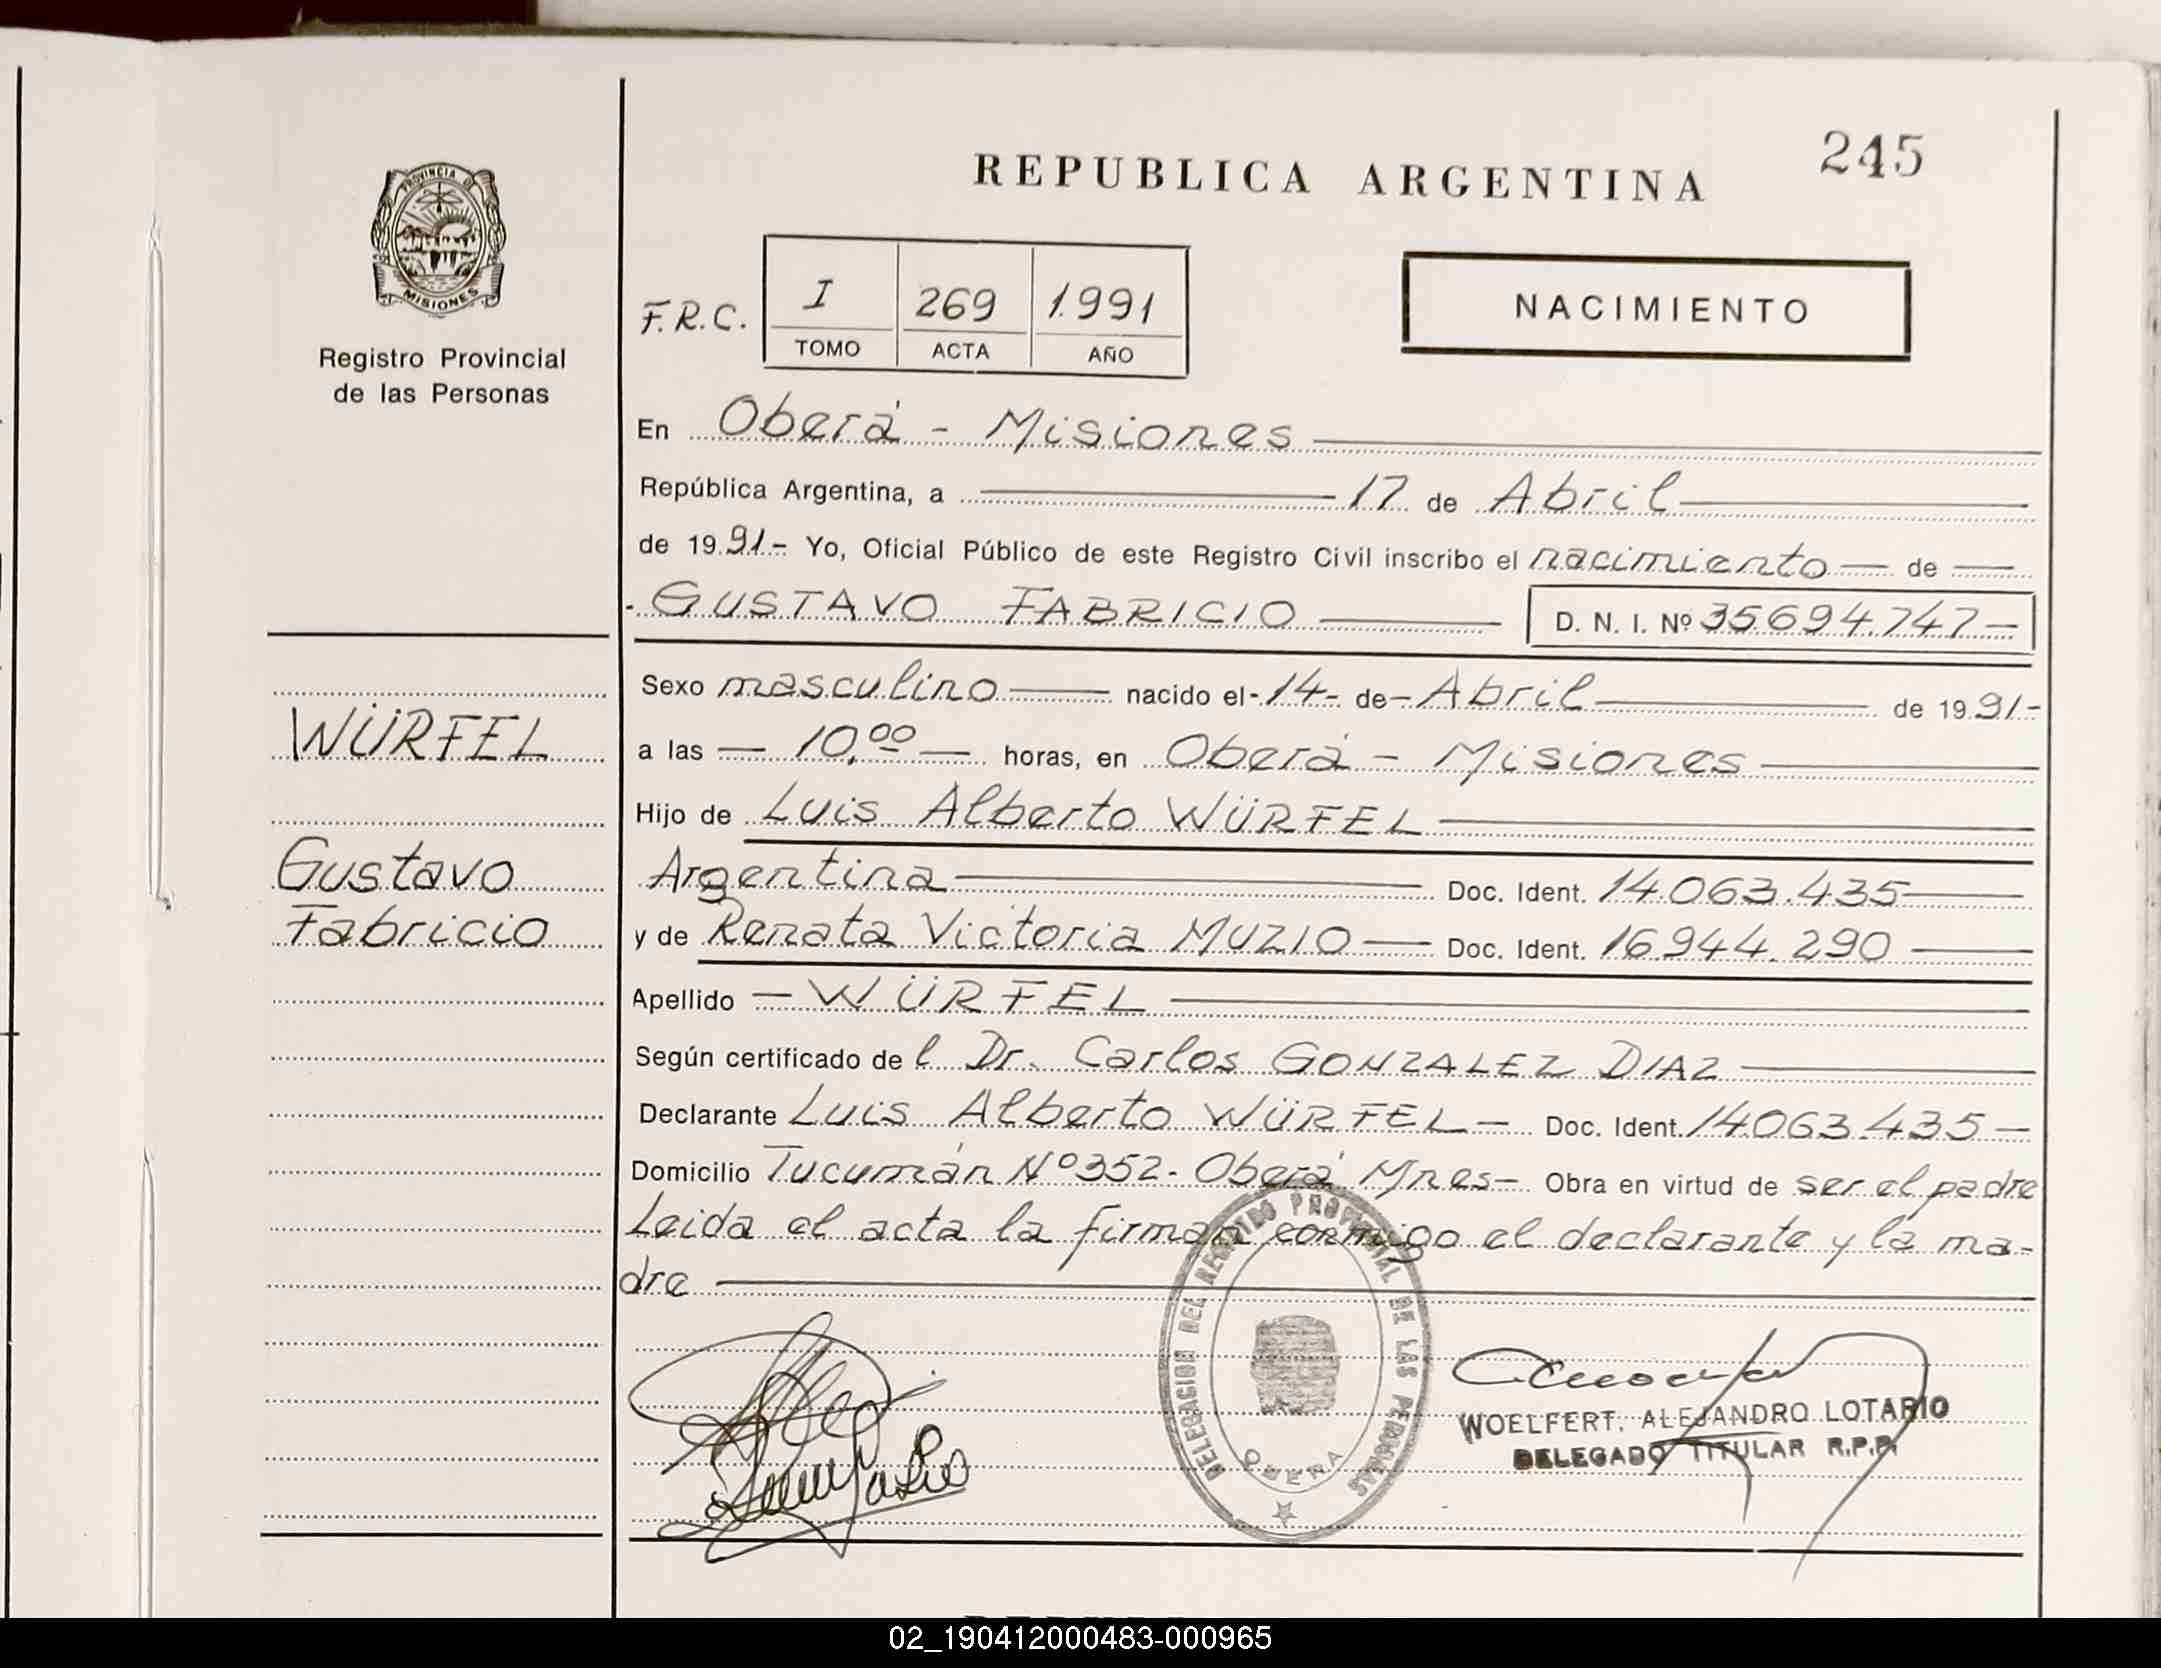 245
REPUBLICA ARGENTINA
PROVINCIA DE
MISIONES
Registro Provincial
de las Personas
F.R.C.
I 269 1.991
TOMO ACTA AÑO
NACIMIENTO
En Oberá - Misiones
República Argentina, a 17 de Abril
de 1991.- Yo, Oficial Público de este Registro Civil inscribo el nacimiento — de —
GUSTAVO FABRICIO — D. N. I. Nº 35694.747 —
Sexo masculino — nacido el - 14 - de - Abril — de 1991 -
a las — 10,00 — horas, en Oberá - Misiones
Hijo de Luis Alberto WÜRFEL
Argentina — Doc. Ident. 14.063.435
y de Renata Victoria MUZIO — Doc. Ident. 16.944.290
Apellido — WÜRFEL
Según certificado de l Dr. Carlos GONZALEZ DIAZ
Declarante Luis Alberto WÜRFEL — Doc. Ident. 14.063.435 —
Domicilio Tucumán Nº 352 - Oberá Mnes - Obra en virtud de ser el padre
Leida el acta la firman conmigo el declarante y la ma-
dre
WÜRFEL
Gustavo
Fabricio
DELEGACION DEL REGISTRO PROVINCIAL DE LAS PERSONAS
OBERA
WOELFERT, ALEJANDRO LOTARIO
DELEGADO TITULAR R.P.P.
02_190412000483-000965